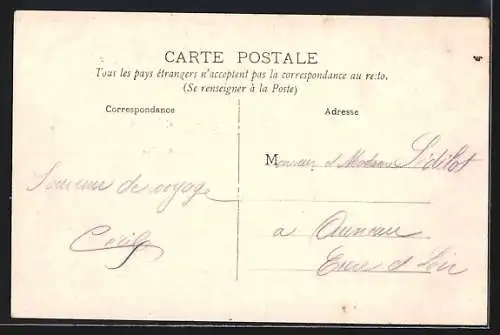 CARTE POSTALE
Tous les pays étrangers n'acceptent pas la correspondance au recto.
(Se renseigner à la Poste)
Correspondance
Adresse
Monsieur et Madame Sédillot
Souvenir de voyage
à Auneau
Cécile
Eure et Loir